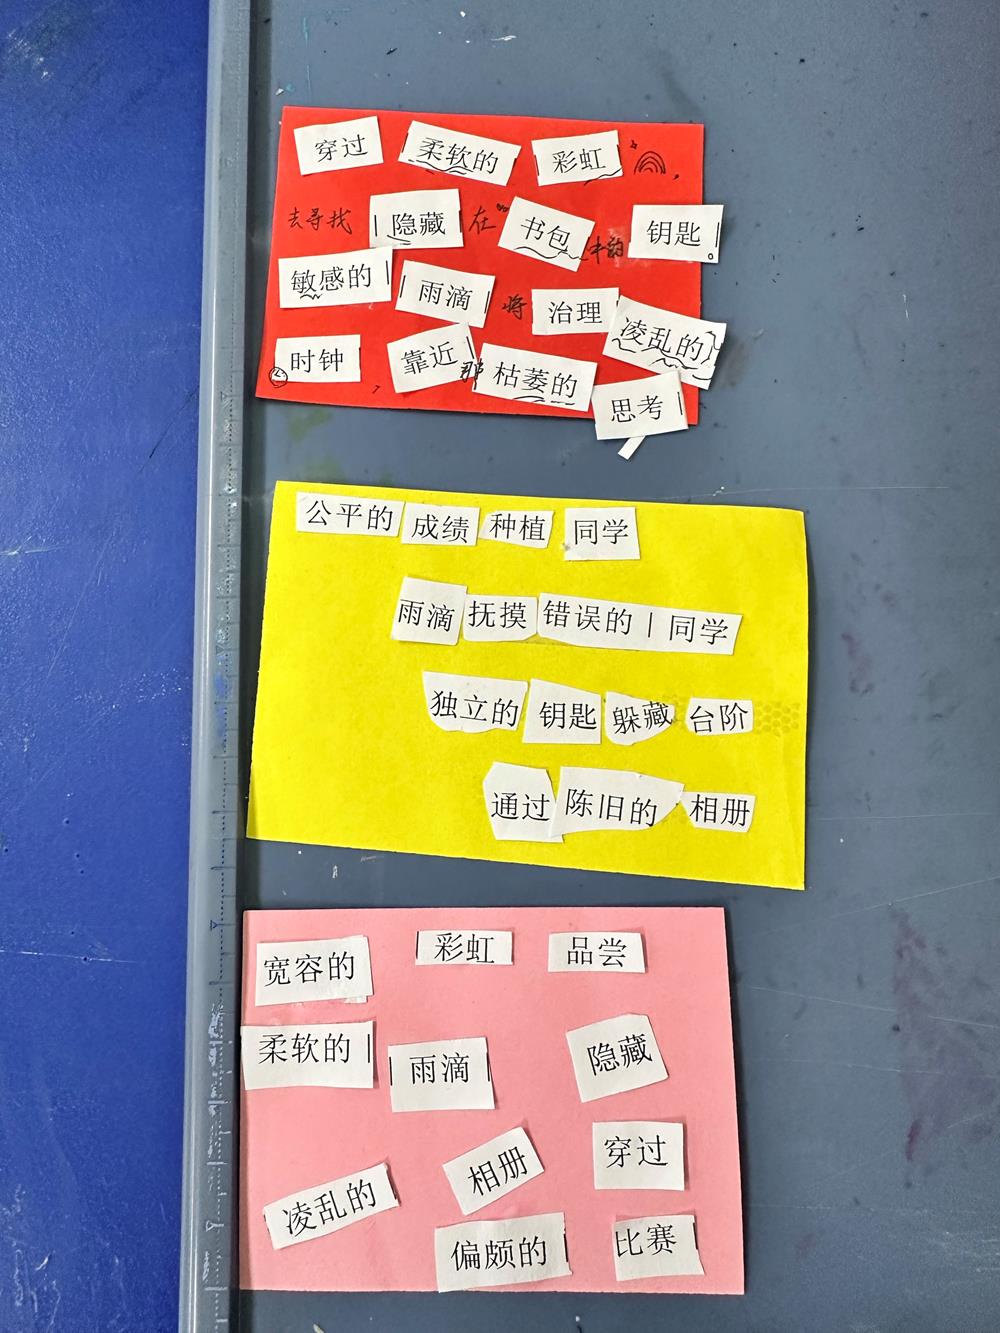 穿过 柔软的 彩虹 ，
去寻找 隐藏 在 书包 中的 钥匙 。
敏感的 雨滴 将 治理 凌乱的
时钟 ， 靠近 那 枯萎的 思考
公平的 成绩 种植 同学
雨滴 抚摸 错误的 | 同学
独立的 钥匙 躲藏 台阶
通过 陈旧的 相册
宽容的 彩虹 品尝
柔软的 雨滴 隐藏
凌乱的 相册 穿过
偏颇的 比赛